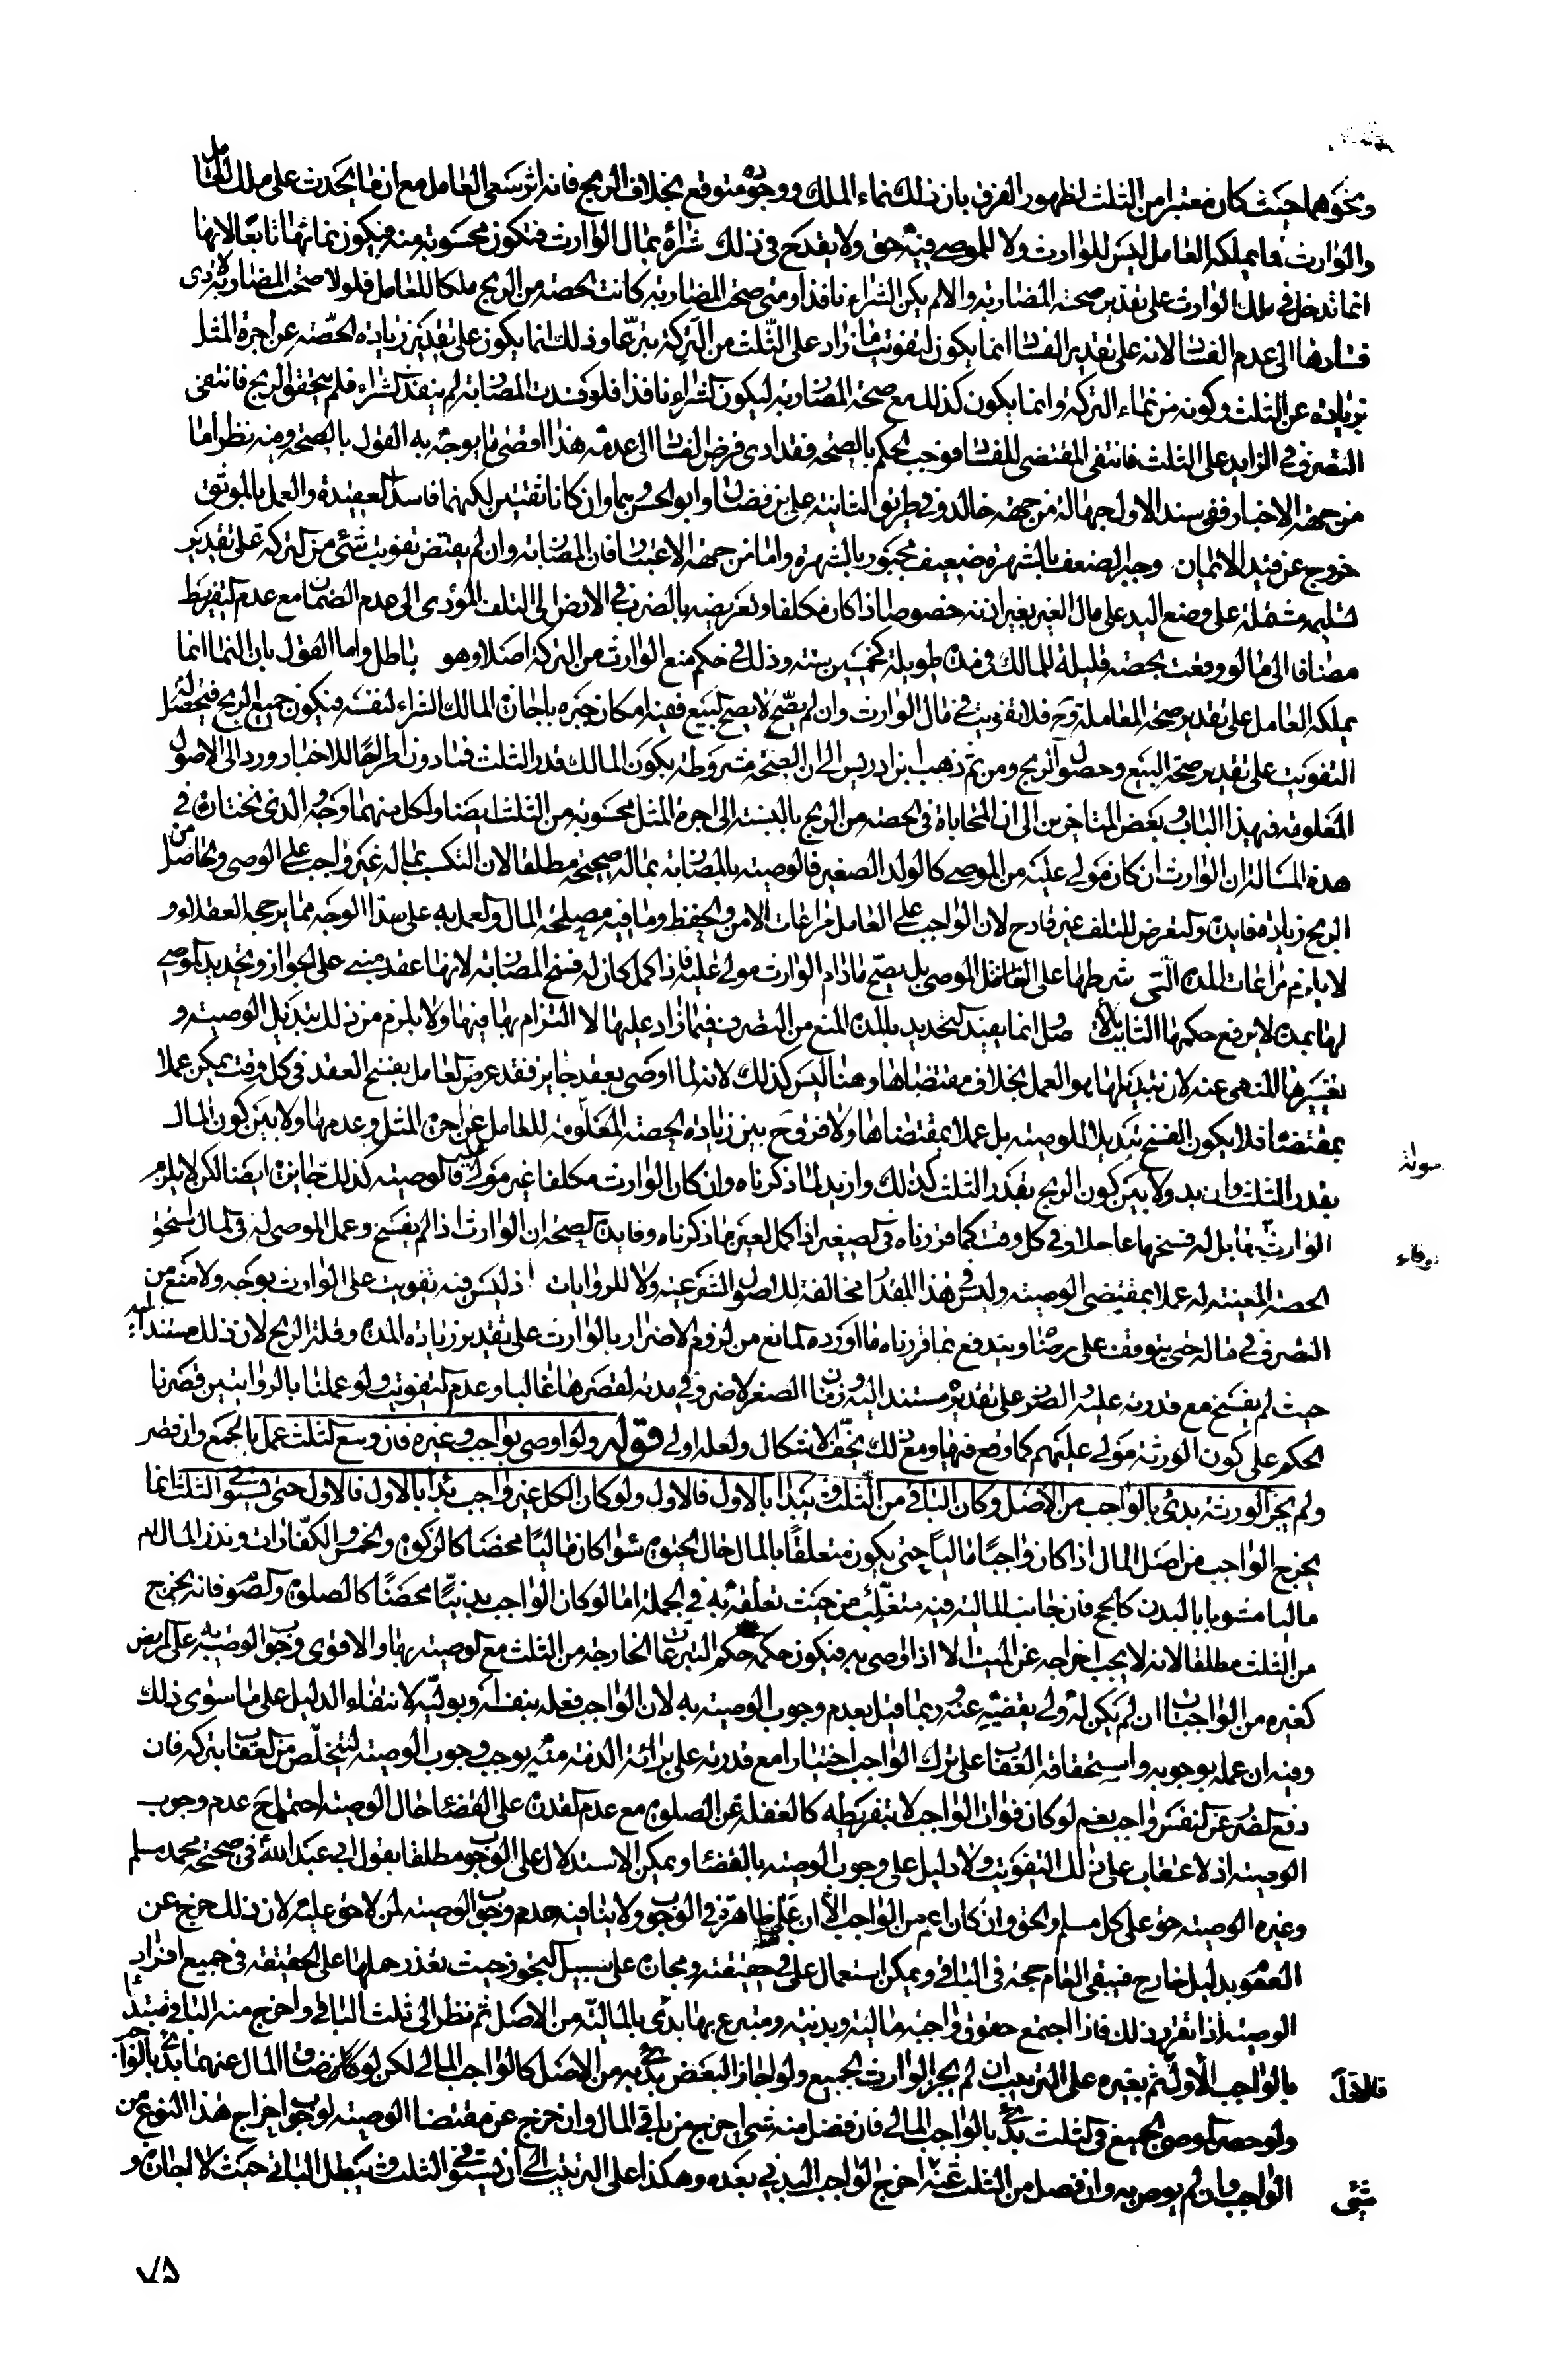 ونحوهما حيث كان معتبرا من الثلث لظهور الفرق بان ذلك نماء الملك ووجوده متوقع بخلاف الربح فانه اثر سعى العامل مع ان ما يحدث على ملك العامل
والوارث فما يملكه العامل ليس للوارث ولا للموصى فيه حق ولا يقدح في ذلك شراؤه بمال الوارث فتكون محسوبة منه فيكون نمائها تابعا لانها
انما تدخل في ملك الوارث على تقدير صحة المضاربة والا لم يكن الشراء نافذا ومتى صحت المضاربة كانت الحصة من الربح ملكا للعامل فلولا صحت المضاربة لادى
فسادها الى عدم الفساد لانه على تقدير الفساد انما يكون لتفويت ما زاد على الثلث من التركة تبرعا وذلك انما يكون على تقدير زيادة الحصة عن اجرة المثل
بزيادة عن الثلث وكونه من نماء التركة وانما يكون كذلك مع صحة المضاربة ليكون الشراء نافذا فلو فسدت المضاربة لم ينفذ الشراء فلم يتحقق الربح فانتفى
التصرف في الزايد على الثلث فانتفى المقتضى للفساد فوجب الحكم بالصحة فقد ادى فرض الفساد الى عدمه هذا اقصى ما يوجه به القول بالصحة وفيه نظر اما
من جهة الاخبار ففى سند الاول جهالة من جهة خالد وفي طريق الثانية على بن فضال وابو الحسن وهما وان كانا ثقتين لكنهما فاسدا العقيدة والعمل بالموثق
خروج عن قيد الايمان وجبر الضعف بالشهرة ضعيف مجبور بالشهرة واما من جهة الاعتبار فان المضاربة وان لم يقتض تفويت شئ من التركة على تقدير
تسليمه مشتملة على وضع اليد على مال الغير بغير اذنه خصوصا اذا كان مكلفا وتعريضه بالضرب في الارض الى التلف المؤدى الى عدم الضمان مع عدم التفريط
مضافا الى ما لو وقعت بحصة قليلة للمالك وفي مدة طويلة كخمسين سنة وذلك في حكم منع الوارث من التركة اصلا وهو باطل واما القول بان النماء انما
يملكه العامل على تقدير صحة المعاملة وح فلا تفويت في مال الوارث وان لم يصح لا يصح البيع ففيه امكان جبره باجازة المالك الشراء لنفسه فيكون جميع الربح له فيحصل
التفويت على تقدير صحة البيع وحصول الربح ومن ثم ذهب ابن ادريس الى ان الصحة مشروطة بكون المالك قدر الثلث فما دون اطراحا للاخبار وردا الى الاصول
المعلومة في هذا الباب وبعض المتاخرين الى ان المحاباة في الحصة من الربح بالنسبة الى اجرة المثل محسوبة من الثلث ايضا ولكل منهما وجه والذى نختاره في
هذه المسالة ان الوارث ان كان مولى عليه من الموصى كالولد الصغير فالوصية بالمضاربة بماله صحيحة مطلقا لان التكسب بماله غير واجب على الوصى والحاصل من
الربح زيادة فايدة والتعرض للتلف غير قادح لان الواجب على العامل مراعات الامن والحفظ وما فيه مصلحة المال والعمل به على هذا الوجه مما يرجحه العقلاء و
لا يلزم مراعات المدة التى شرطها على العامل الموصى بل يصح ما دام الوارث مولى عليه فاذا كمل كان له فسخ المضاربة لانها عقد مبنى على الجواز وتحديد الموصى
لها بمدة لا يرفع حكمها الثابت بالاصل انما يفيد التحديد بالمدة المنع من التصرف فيما زاد عليها لا التزام بها فيها ولا يلزم من ذلك تبديل الوصية و
تغييرها المنهى عنه لان تبديلها هو العمل بخلاف مقتضاها وهنا ليس كذلك لانه لما اوصى بعقد جايز فقد عرض العامل بفسخ العقد في كل وقت يمكن عملا
بمقتضاه فلا يكون الفسخ تبديلا للوصية بل عملا بمقتضاها ولا فرق ح بين زيادة الحصة المعلومة للعامل عن اجرة المثل وعدمها ولا بين كون المال
بقدر الثلث وازيد ولا بين كون الربح بقدر الثلث كذلك وازيد لما ذكرناه وان كان الوارث مكلفا غير مولى عليه فالوصية كذلك جايزة ايضا لكن لا يلزم
الوارث بها بل له فسخها عاجلا وفي كل وقت كما قررناه في الصغير اذا كمل لعين ما ذكرناه وفايدة الصحة ان الوارث اذا لم يفسخ وعمل الموصى له في المال استحق
الحصة المعينة له عملا بمقتضى الوصية وليس في هذا المقدار مخالفة للاصول الشرعية ولا للروايات اذ ليس فيه تفويت على الوارث بوجه ولا منع من
التصرف في ماله حتى يتوقف على رضاه ويندفع بما قررناه ما اورده المانع من لزوم الاضرار بالوارث على تقدير زيادة المدة وقلة الربح لان ذلك مستند اليه
حيث لم يفسخ مع قدرته عليه والضرر على تقديره مستند اليه وزمان الصغر لا ضرر في مدته لقصرها غالبا وعدم التفويت ولو عملنا بالروايتين قصرنا
الحكم على كون الورثة مولى عليهم كما وقع فيها ومع ذلك يخف الاشكال ولعله اولى قوله ولو اوصى بواجب وغيره فان وسع الثلث عمل بالجميع وان قصر
ولم يجز الورثة بدئ بالواجب من الاصل وكان الباقى من الثلث ويبدا بالاول فالاول ولو كان الكل غير واجب بدا بالاول فالاول حتى يستوفى الثلث انما
يخرج الواجب من اصل المال اذا كان واجبا ماليا حتى يكون متعلقا بالمال حال الحيوة سواء كان ماليا محضا كالزكوة والخمس والكفارات ونذر المال ام
ماليا مشوبا بالبدن كالحج فان جانب المالية فيه متغلب من حيث تعلقه به في الجملة اما لو كان الواجب بدنيا محضا كالصلوة والصوم فانه يخرج
من الثلث مطلقا لانه لا يجب اخراجه عن الميت الا اذا اوصى به فيكون حكمه حكم التبرعات الخارجة من الثلث مع الوصية بها والاقوى وجوب الوصية به على المريض
كغيره من الواجبات ان لم يكن له ولى يقضيه عنه وربما قيل بعدم وجوب الوصية به لان الواجب فعله بنفسه وبوليه لانتفاء الدليل على ما سوى ذلك
وفيه ان علمه بوجوبه واستحقاقه العقاب على ترك الواجب اختيارا مع قدرته على برائة الذمة منه يوجب وجوب الوصية ليتخلص من العقاب بتركه فان
دفع الضرر عن النفس واجب نعم لو كان فوات الواجب لا بتفريطه كالغفلة عن الصلوة مع عدم القدرة على القضاء حال الوصية احتمل ح عدم وجوب
الوصية اذ لا عقاب على ذلك التفويت ولا دليل على وجوب الوصية بالقضاء ويمكن الاستدلال على الوجوب مطلقا بقول ابى عبد الله في صحيحة محمد بن مسلم
وغيره الوصية حق على كل مسلم والحق وان كان اعم من الواجب الا ان على ظاهرة في الوجوب ولا ينافيه عدم وجوب الوصية لمن لا حق عليه لان ذلك خرج عن
العموم بدليل خارج فيبقى العام حجة في الباقى ويمكن استعمال على في حقيقته ومجازه على سبيل التجوز حيث تعذر حملها على الحقيقة في جميع افراد
الوصية اذا تقرر ذلك فاذا اجتمع حقوق واجبة مالية وبدنية ومتبرع بها بدئ بالمالية من الاصل ثم نظر الى ثلث الباقى واخرج منه الباقى مبتدأ
بالواجب الاول ثم بغيره على الترتيب ان لم يجز الوارث الجميع ولو اجاز البعض بدئ به من الاصل كالواجب المالى لكن لو ضاق المال عنهما بدئ بالواجب
ولو حصر الموصى الجميع في الثلث بدئ بالواجب المالى فان فضل منه شئ اخرج من باقى المال وان خرج عن مقتضا الوصية لوجوب اخراج هذا النوع من
الواجب وان لم يوص به وان فضل من الثلث عنه اخرج الواجب البدنى بعده وهكذا على الترتيب الى ان يستوفى الثلث ويبطل الباقى حيث لا اجازة و
فالاول
شئ
٧٥